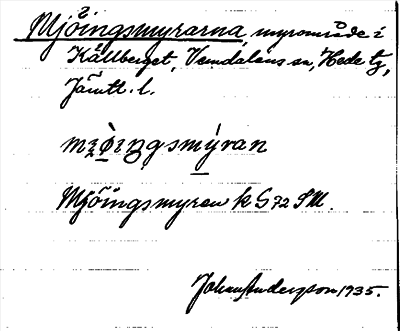 Mjöingsmyrarna, myrområde i
Källberget, Vemdalens sn, Hede tg,
Jämtl. l.
Mjöingsmyren k G 72 SM.
Johan Anderson 1935.